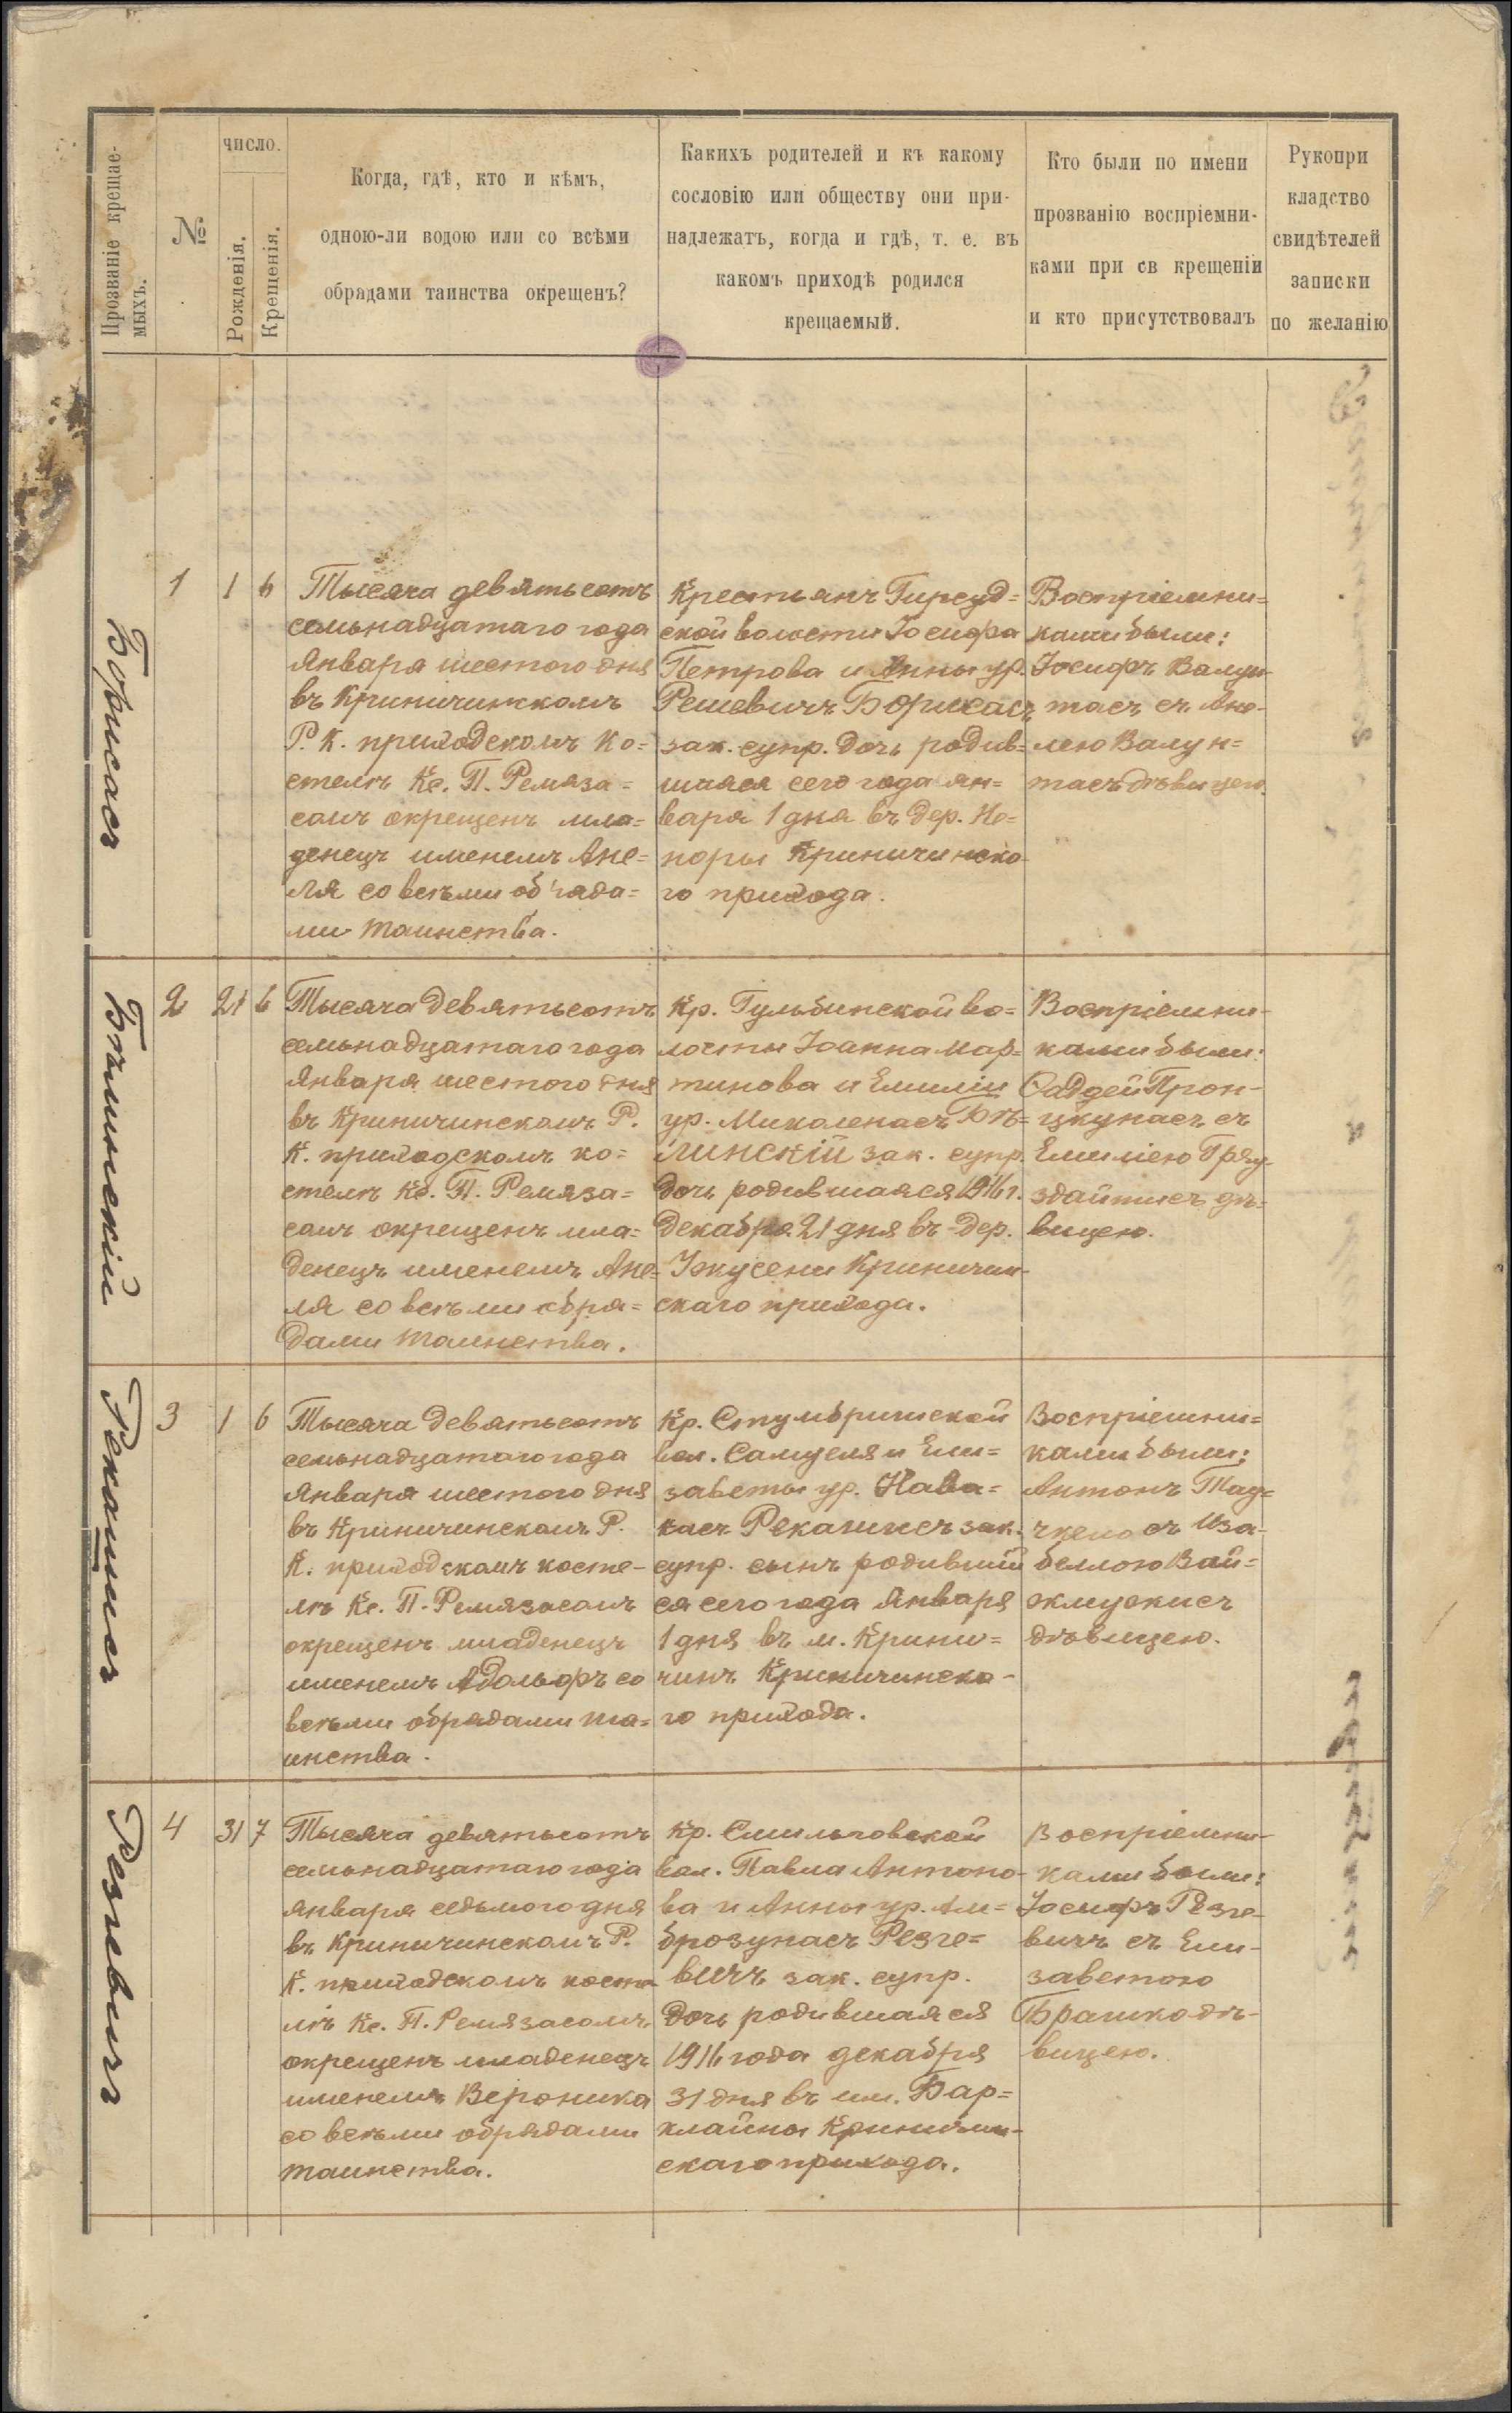 Прозваніе крещае-
мыхъ.
№
число.
Рожденія.
Крещенія.
Когда, гдѣ, кто и кѣмъ,
одною-ли водою или со всѣми
обрядами таинства окрещенъ?
Какихъ родителей и къ какому
сословію или обществу они при-
надлежатъ, когда и гдѣ, т. е. въ
какомъ приходѣ родился
крещаемый.
Кто были по имени
прозванію воспріемни-
ками при св крещеніи
и кто присутствовалъ
Рукопри
кладство
свидѣтелей
записки
по желанію
Борисасъ
1
1
6
Тысяча девятьсотъ
семьнадцатаго года
Января шестого дня
въ Криничинскомъ
Р. К. приходскомъ ко=
стелѣ Кс. П. Ремяза=
сомъ окрещенъ мла=
денецъ именемъ Ане=
ля со всѣми обряда=
ми таинства.
Крестьянъ Гирсуд=
ской волости Іосифа
Петрова и Анны ур.
Решевичъ Борисасъ
зак. супр. дочь родив=
шаяся сего года ян=
варя 1 дня въ дер. Но=
поры Криничинско-
го прихода.
Воспріемни=
ками были:
Іосифъ Валун
тасъ съ Ане-
лею Валун=
тасъ дѣвицею.
Бѣлинскій
2
21
6
Тысяча девятьсотъ
семьнадцатаго года
Января шестого дня
въ Криничинскомъ Р.
К. приходскомъ ко=
стелѣ Кс. П. Ремяза=
сомъ окрещенъ мла=
денецъ именемъ Ане=
ля со всѣми обря=
дами таинства.
Кр. Гульбинской во=
лости Іоанна Мар=
тинова и Емиліи
ур. Миколенасъ Бѣ=
линскій зак. супр.
дочь родившаяся 1916 г.
декабря 21 дня въ дер.
Ужусени Криничин-
скаго прихода.
Воспріемни-
ками были:
Фаддей Прон-
цкунасъ съ
Емиліею Гряу-
здайтисъ дѣ=
вицею.
Рекашисъ
3
1
6
Тысяча девятьсотъ
семьнадцатаго года
Января шестого дня
въ Криничинскомъ Р.
К. приходскомъ косте-
лѣ Кс. П. Ремязасомъ
окрещенъ младенецъ
именемъ Адольфъ со
всѣми обрядами та=
инства.
Кр. Стумбришской
вол. Самуеля и Ели=
заветы ур. Нава=
касъ Рекашисъ зак.
супр. сынъ родивший
ся сего года Января
1 дня въ м. Крини=
чинъ Криничинско-
го прихода.
Воспріемни=
ками были:
Антонъ Тау=
съ Иза-
беллою Вай=
жмужисъ
дѣвицею.
Резгевичъ
4
31
7
Тысяча девятьсотъ
семьнадцатаго года
января седьмого дня
въ Криничинскомъ Р.
К. приходскомъ косте
лѣ Кс. П. Ремязасомъ
окрещенъ младенецъ
именемъ Вероника
со всѣми обрядами
таинства.
Кр. Смильговской
вол. Павла Антоно-
ва и Анны ур. Ам=
брозунасъ Резге=
вичъ зак. супр.
дочь родившаяся
1916 года декабря
31 дня въ им. Бар=
клайны Криничин-
скаго прихода.
Воспріемни-
ками были:
Іосифъ Резге-
вичъ съ Ели-
заветою
Брашко дѣ-
вицею.